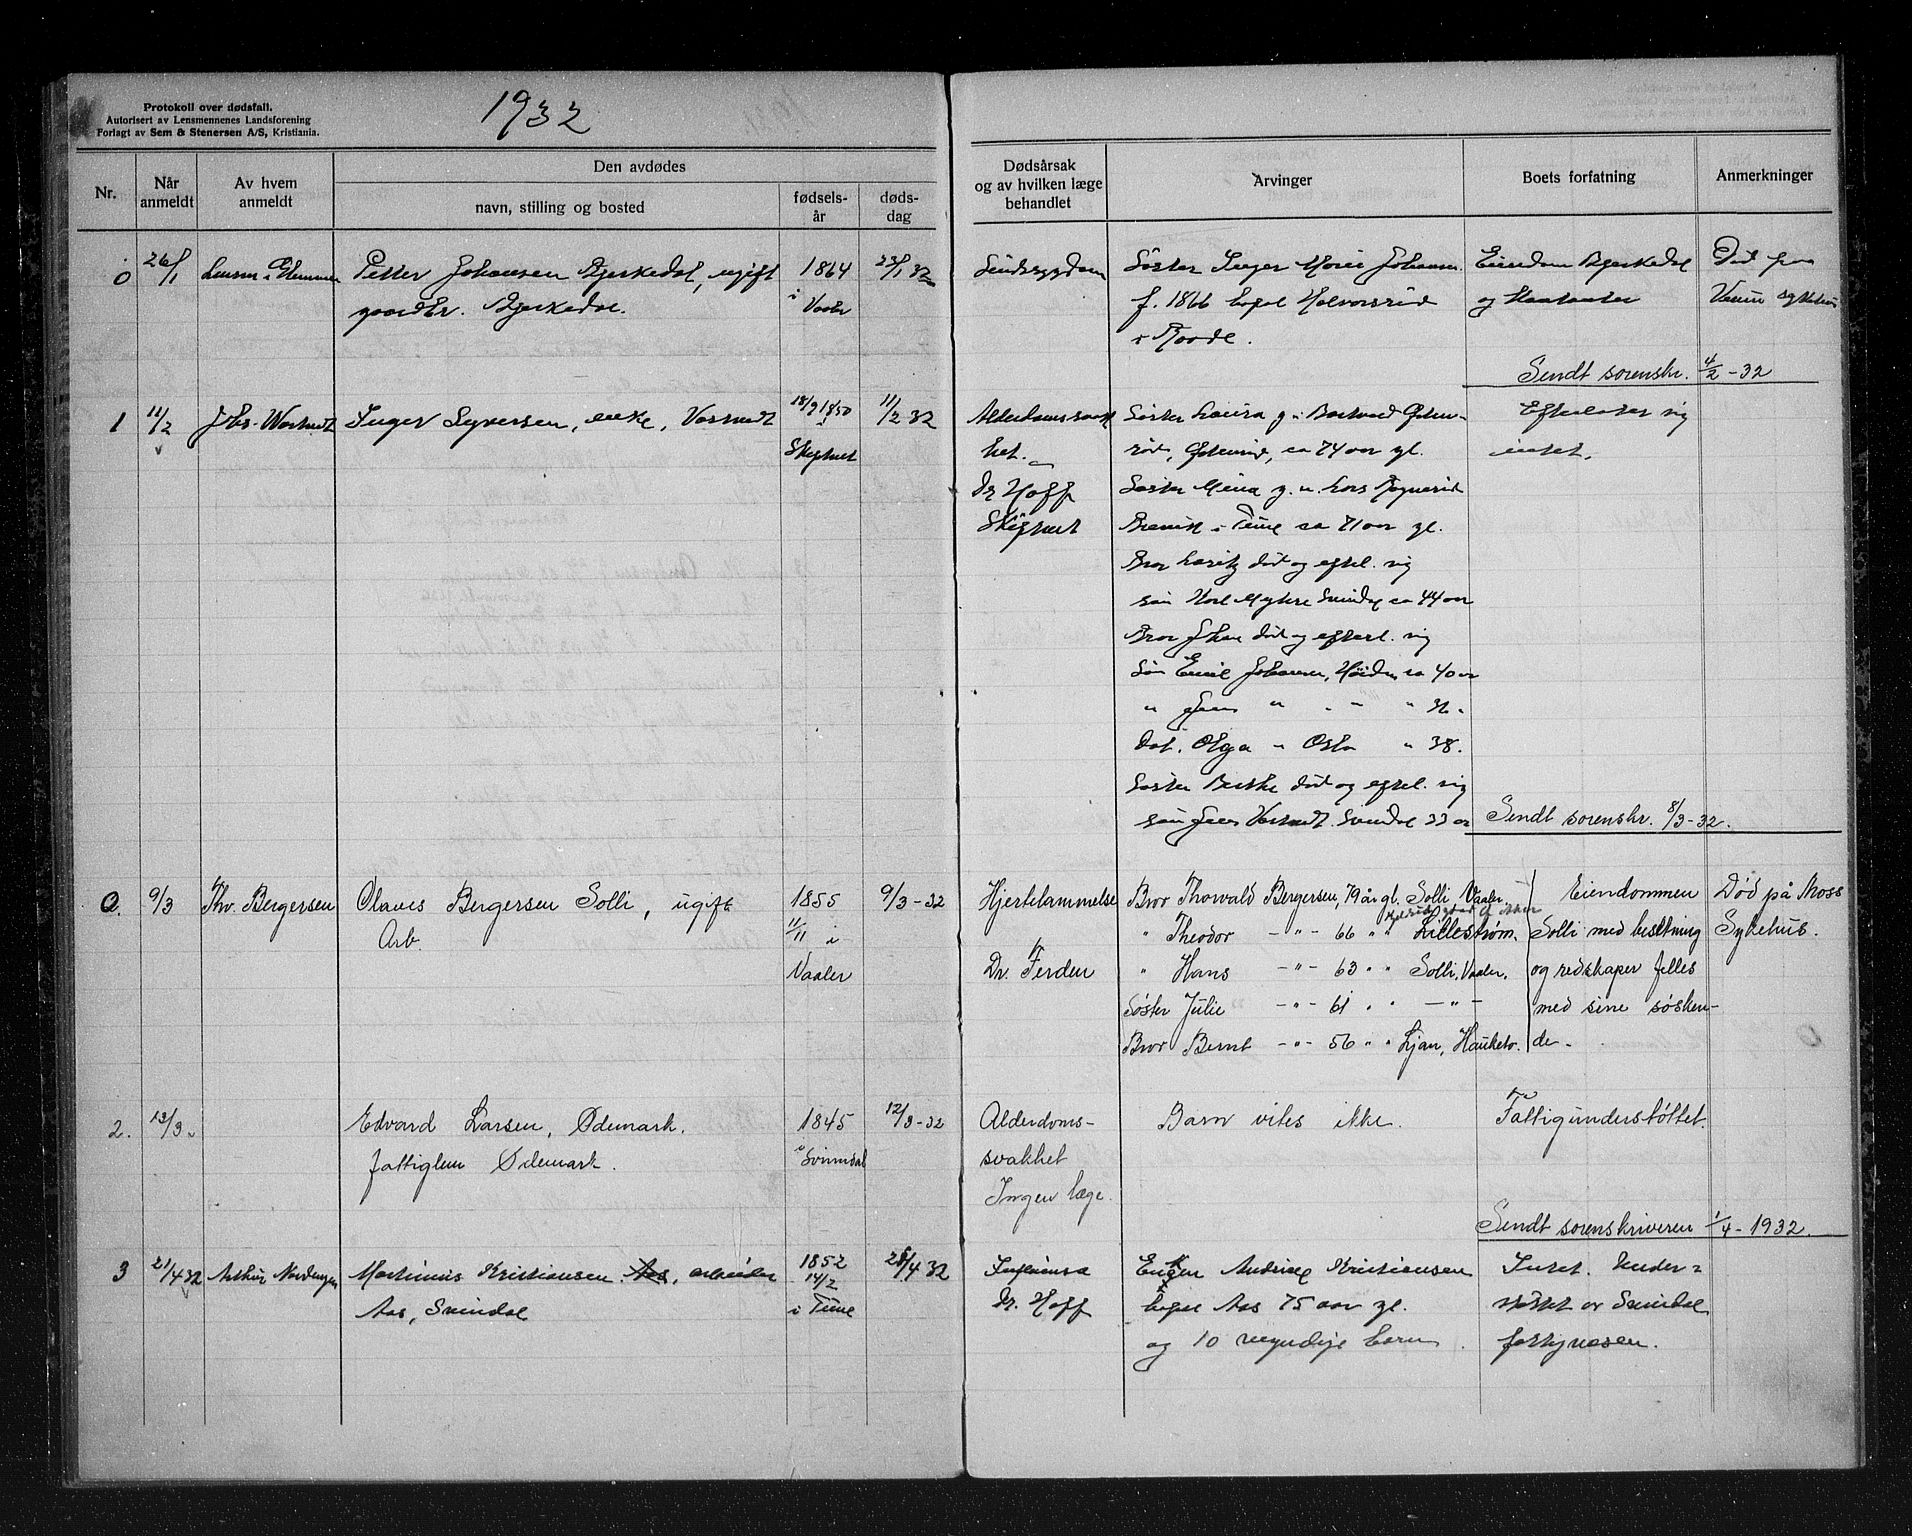 Protokoll over dødsfall.
Autorisert av Lensmennenes Landsforening
Forlagt av Sem & Stenersen A/S, Kristiania.
1932
Nr.
Når anmeldt
Av hvem anmeldt
Den avdødes
navn, stilling og bosted
fødsels-
år
døds-
dag
Dødsårsak
og av hvilken læge
behandlet
Arvinger
Boets forfatning
Anmerkninger
0 26/1 Lensm. i Glemmen Petter Johansen Bjerkedal, ugift 1864 23/1 32 Sindssygdom Søster Inger Marie Johansen Eiendom Bjerkedal Død paa
gaardbr. Bjerkedal. i Vaaler f. 1866 bopæl Halvorsrød og Veum sykehus
i Raade.
Sendt sorenskr. 4/2-32
1 11/2 Johs. Warnedt Inger Syversen, enke, Varnedt 18/9 1850 11/2 32 Alderdomssvak Søster Lovisa g. Efterlater sig
Skiptvet het. ca 74 aar gl. intet.
Dr Hoff Søster Mina g. m. Lars
Skiptvet i Tune ca 71 aar gl.
Bror død og eftel. sig
søn Karl Myhre Svindal ca 44 aar
Bror Johan død og efterl. sig
Søn Emil Johansen, ca 40 aar
" Jens " " - " " 36 "
Dat. Olga " Oslo " 38.
Søster Berthe død og eftel. sig
søn Jens Varnedt. Svindal 33 aar
Sendt sorenskr. 8/3-32.
0. 9/3 Thv. Bergersen Olaves Bergersen Solli, ugift 1855 9/3-32 Hjertelammelse Bror Thorvald Bergersen, 79 år gl. Solli Vaaler. Eiendommen Død på Moss
Arb. 11/11 i " Theodor -"- 66 " " Lillestrøm. Solli med besetning Sykehus.
Vaaler Dr. Ferden " Hans -"- 63 " " Solli, Vaaler. og redskaper felles
Søster Julie -"- 61 " " -"- med sine søsken-
Bror Bernt -"- 56 " " Ljan, Hauketo. de.
2. 13/3. Edvard Larsen, Ødemark. 1845 12/3-32 Alderdoms- Barn vites ikke. Fattigunderstøttet.
fattiglem Ødemark. i Svinndal svakhet
Ingen læge.
Sendt sorenskriveren 1/4-1932.
3 21/4 32 Arthur Nordengen Martinius Kristiansen. Aas, arbeider 1852 20/4 32 Influensa Enken Andrine Kristiansen Intet. Under=
Aas, Svindal 14/2 i Tune Dr. Hoff bopel Aas 75 aar gl. støttet av Svindal
og 10 myndige barn. fattigvæsen.